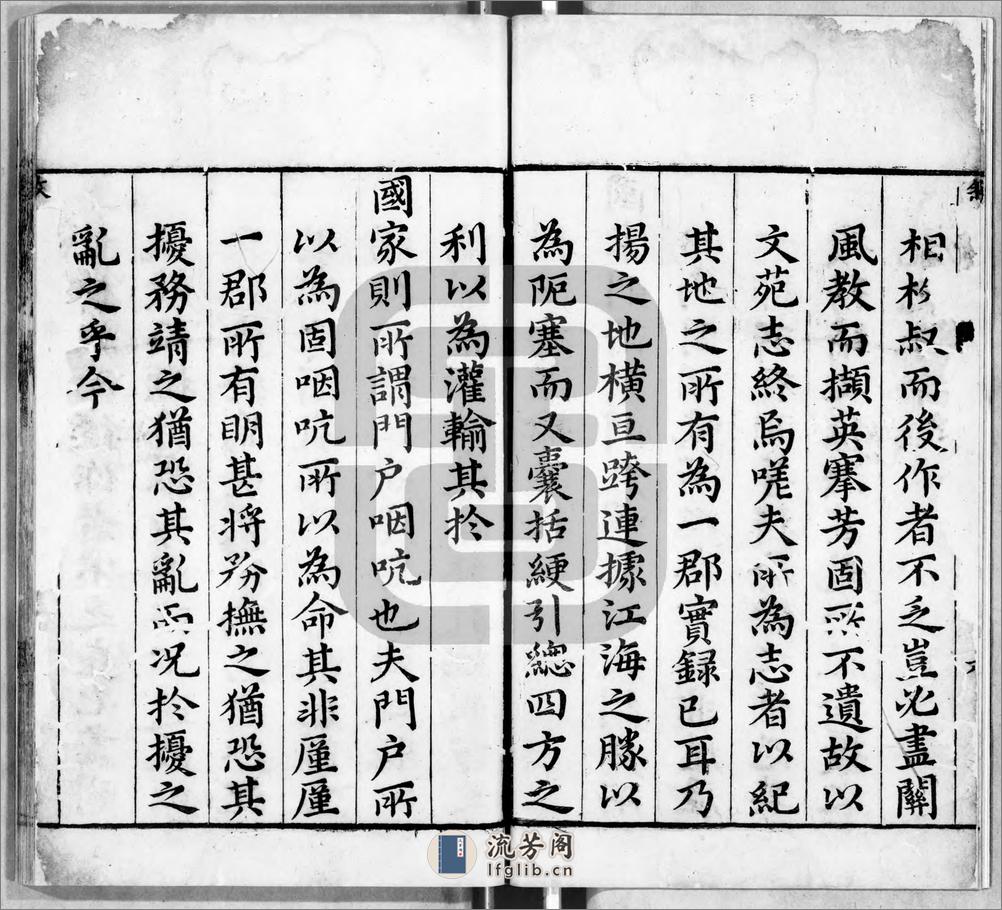 相杉叔而後作者不乏豈必盡關
風教而擷英搴芳固所不遺故以
文苑志終焉嗟夫所為志者以紀
其地之所有為一郡實録已耳乃
揚之地橫亘跨連據江海之勝以
為阨塞而又囊括綆引總四方之
利以為灌輸其於
國家則所謂門户咽吭也夫門户所
以為固咽吭所以為命其非厪厪
一郡所有明甚將吩撫之猶恐其
擾務靖之猶恐其亂而况於擾之
亂之乎今
流芳阁
lfglib.cn